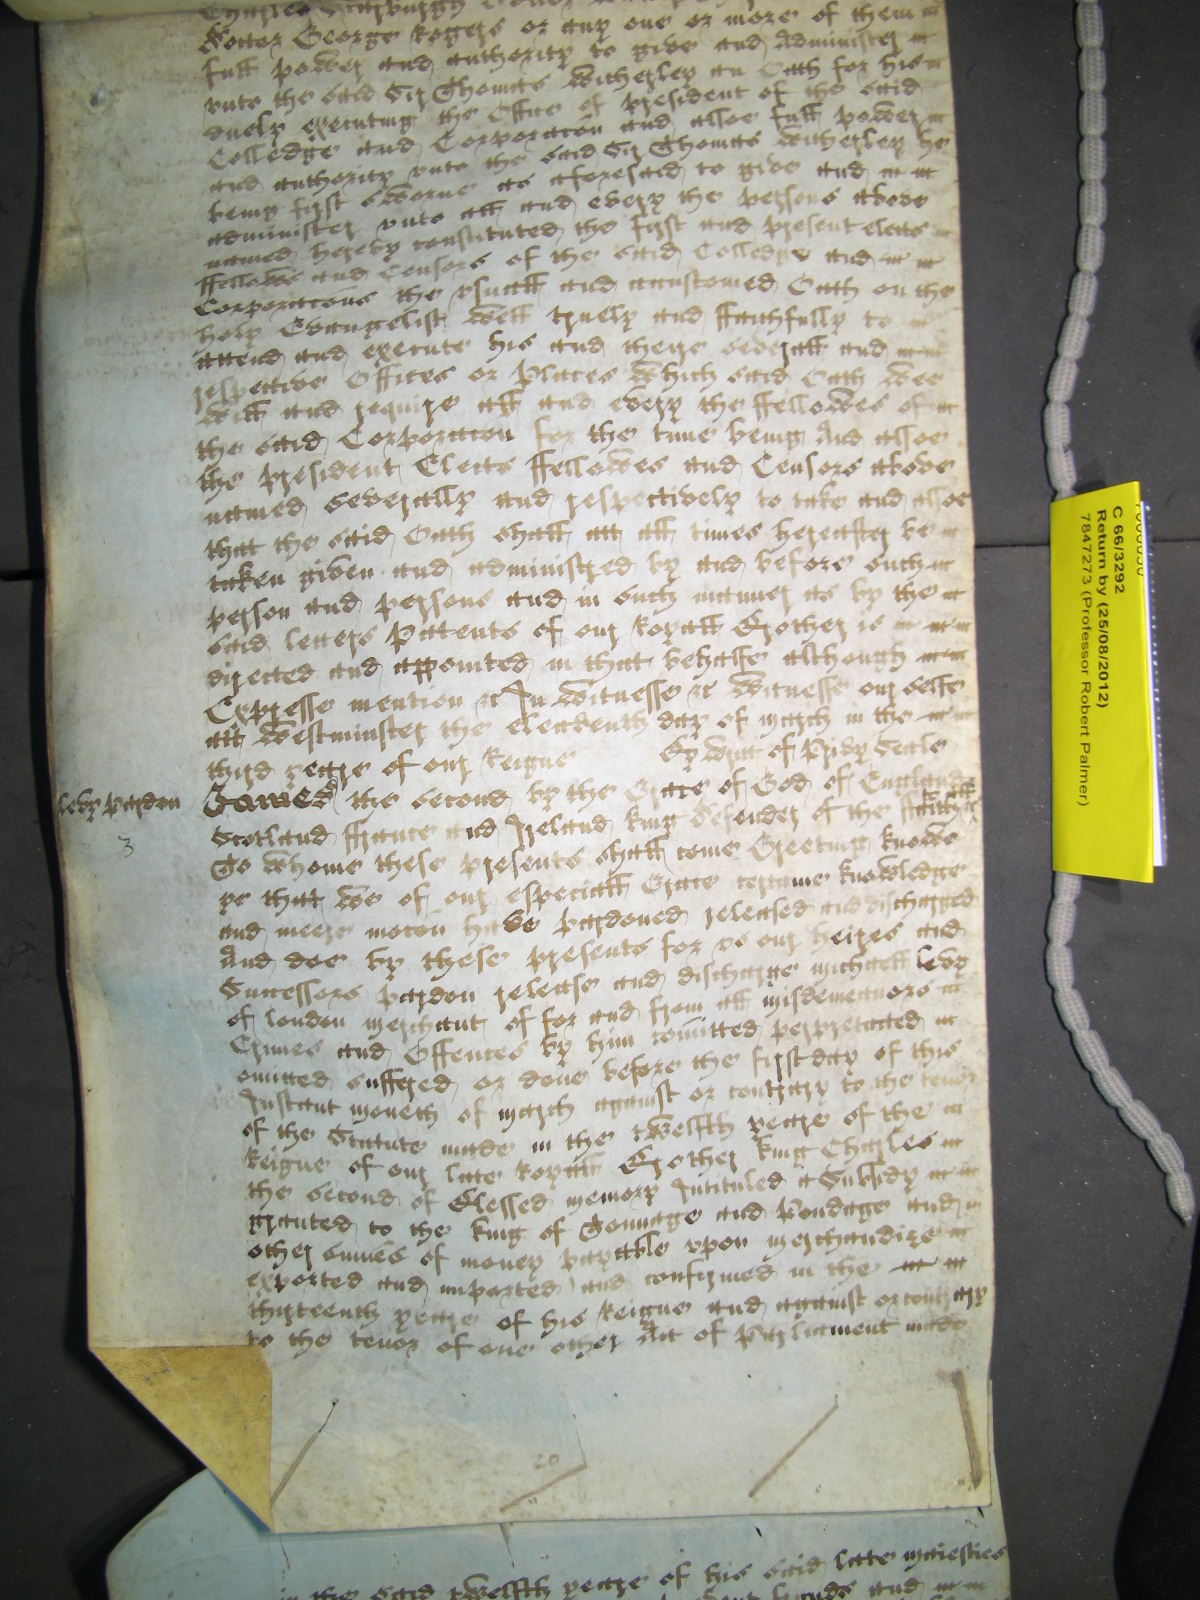 Doctor George Rogers or any one or more of them
full power and authority to give and Administer
vnto the said Sir Thomas Witherley an Oath for his
duely executing the Office of President of the said
Colledge and Corporacon and alsoe full power
and authority vnto the said Sir Thomas Witherley he
being first sworne as aforesaid to give and
administer vnto all and every the persons above
named hereby constituted the first and present elects
ffellowes and Censors of the said Colledge and
Corporacons the vsuall and accustomed Oath on the
holy Evangelist well truely and ffaithfully to
attend and execute his and theire severall and
respective Offices or Places Which said Oath Wee
Will and require all and every the ffellowes of
the said Corporacon for the time being And alsoe
the President Elects ffellowes and Censors above
named severally and respectively to take and alsoe
that the said Oath shall att all times hereafter be
taken given and administred by and before such
person and persons and in such manner as by the
said letters Patents of our Royall Brother is
directed and appointed in that behalfe although
Expresse mention &c In Witnesse &c Witnesse our selfe
att Westminster the eleaventh day of March in the
third yeare of our Reigne By Writt of Privy Seale
Levy pardon
James the second by the Grace of God of England
Scotland ffrance and Ireland King Defender of the ffaith &c
To all
To Whome these presents shall come Greeting Knowe
ye that we of our especiall Grace certaine knowledge
and meere mocon have Pardoned released and discharged
And doe by these presents for vs our heires and
Successors pardon release and discharge Michaell Levy
of London Merchant of for and from all misdemeanors
Crimes and Offences by him comitted perpetrated
omitted suffered or done before the first day of this
Instant moneth of March against or contrary to the tenor
of the Statute made in the twelfth yeare of the
Reigne of our late Royall Brother King Charles
the second of Blessed memory Intituled a Subsidy
granted to the King of Tonnage and Pondage and
other summes of money payable vpon merchandize
exported and imported and confirmed in the
thirteenth yeare of his Reigne and against or contrary
to the tenor of one other Act of Parliament made
3
20
in the said twelfth yeare of his said late Majesties
C 66/3292
Return by (25/08/2012)
7847273 (Professor Robert Palmer)